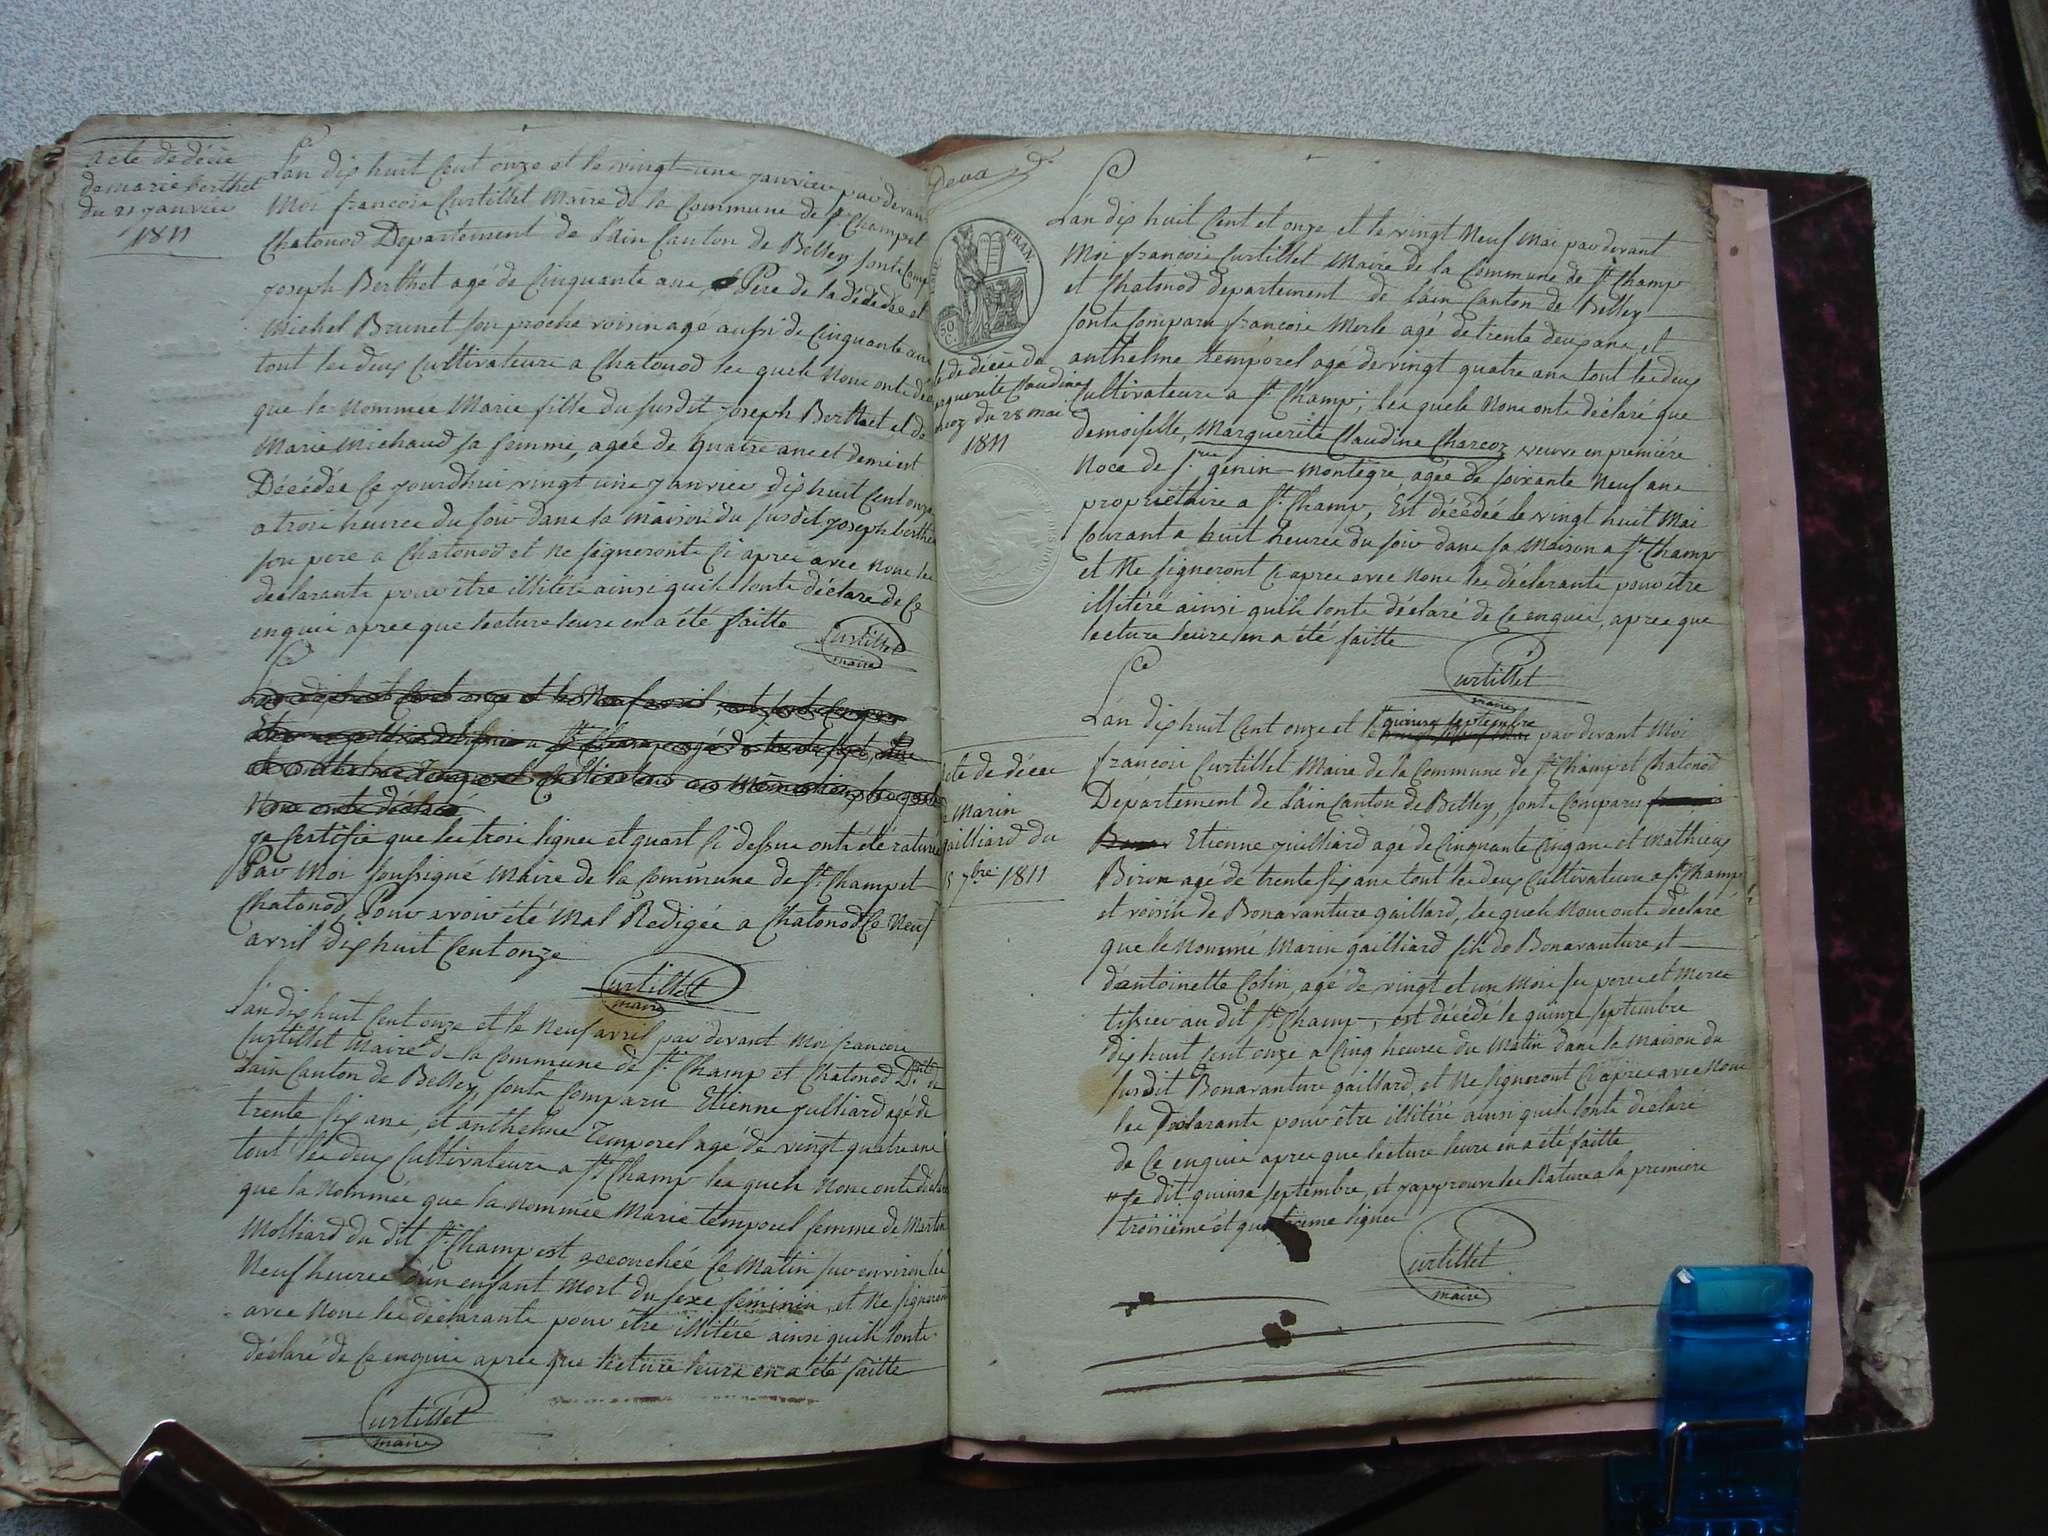 acte de décès
de marie berthet
du 21 janvier
1811
L'an dix huit Cent onze et le vingt une janvier par devant
Moi françois Curtillet Maire de la Commune de St Champ et
Chatonod Departement de L'ain Canton de Belley sonts Comp
joseph Berthet agé de Cinquante ans, Pere de la dédédée et
Michel Brunet son proche voisin age aussi de Cinquante ans
tout les deux Cultivateurs a Chatonod les quels Nous onts dé
que la nommée Marie fille du susdit joseph Berthet et de
Marie Michaud sa femme, agée de quatre ans et demi est
Décédée Ce jourdhui vingt une janvier dix huit Cent onze
a trois heures du soir dans la maison du susdit joseph berthe
son pere a Chatonod et ne signeronts Ci apres avec nous les
declarants pour être illitéré ainsi quils Lonts déclaré de Ce
enquis apres que lecture leurs en a été faitte
Curtillet
maire
Nous onts déclaré
je Certifie que les trois lignes et quart Ci dessus onts été raturé
Par Moi soussigné Maire de la Commune de St Champ et
Chatonod, Pour avoir été Mal Redigée a Chatonod Ce Neuf
avril dix huit Cent onze
Curtillet
maire
L'an dix huit Cent onze et le Neuf avril par devant Moi francois
Curtillet Maire de la Commune de St Champ et Chatonod D.nt de
Lain Canton de Belley, sonts Comparu Etienne julliard agé de
trente six ans, et anthelme Temporel agé de vingt quatre ans
tout les deux Cultivateurs a St Champ les quels Nous onts déclaré
que la nommée que la nommée Marie temporel femme de Martin
Molliard du dit St Champ est accouchée Ce Matin sur environ les
Neuf heures d'un enfant Mort du sexe féminin, et Ne signeront
avec Nous les déclarants pour être illitéré ainsi quils Lonts
déclaré de Ce enquis apres que lecture leurs en a été faitte
Curtillet
maire
FRAN.
50
C.
te de décès de
rguerite Claudine
rcoz du 28 mai
1811
L'an dix huit Cent et onze et le vingt Neuf Mai par devant
Moi françois Curtillet Maire de la Commune de St Champ
et Chatonod departement de L'ain Canton de Belley
sonts Comparu françois Merle agé de trente deux ans et
anthelme temporel agé de vingt quatre ans tout les deux
Cultivateurs a St Champ, les quels Nous onts déclaré que
demoiselle, Marguerite Claudine Charcoz veuve en première
Noce de genin-montegre agée de soixante Neuf ans
propriétaire a St Champ, Est décédée le vingt huit Mai
Courant a huit heures du soir dans sa Maison a St Champ
et Ne signeront Ci apres avec Nous les déclarants pour être
illitéré ainsi quils Lonts déclaré de Ce enquis, apres que
lecture leurs en a été faitte
Curtillet
maire
te de décès
Marin
gailliard du
15 7bre 1811
L'an dix huit Cent onze et le quinze septembre par devant Moi
françois Curtillet Maire de la Commune de St Champ et Chatonod
Departement de L'ain Canton de Belley, sonts Comparus
Etienne juilliard agé de Cinquante Cinq ans et Mathieux
Biron agé de trente six ans tout les deux Cultivateurs a St Champ
et voisin de Bonavanture gaillard, les quels Nous onts déclaré
que le Nommé Marin gailliard fils de Bonavanture et
d'antoinette Colin, agé de vingt et un Mois ses peres et Meres
tissier au dit St Champ, est décédé le quinze septembre
dix huit Cent onze a Cinq heures du Matin dans la Maison du
susdit Bonavanture gaillard, et Ne signeront Ci apres avec Nous
les Déclarants pour être illitéré ainsi quils Lonts declaré
de Ce enquis apres que lecture leurs en a été faitte
je dit quinze septembre, et j'approuve les Ratures a la premiere
troisième et quatrieme lignes
Curtillet
maire